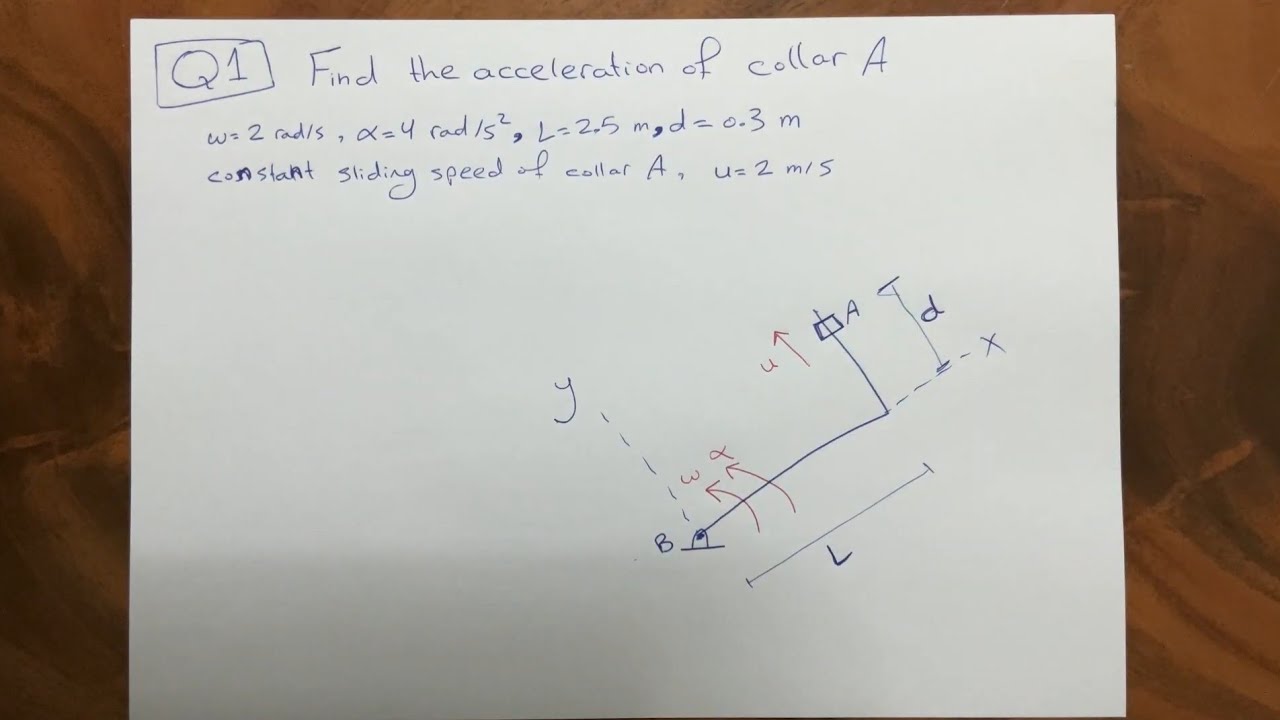 Q1 Find the acceleration of collar A
ω=2 rad/s, α=4 rad/s², L=2.5 m, d=0.3 m
constant sliding speed of collar A, u=2 m/s
A
d
u
X
y
ω α
B
L